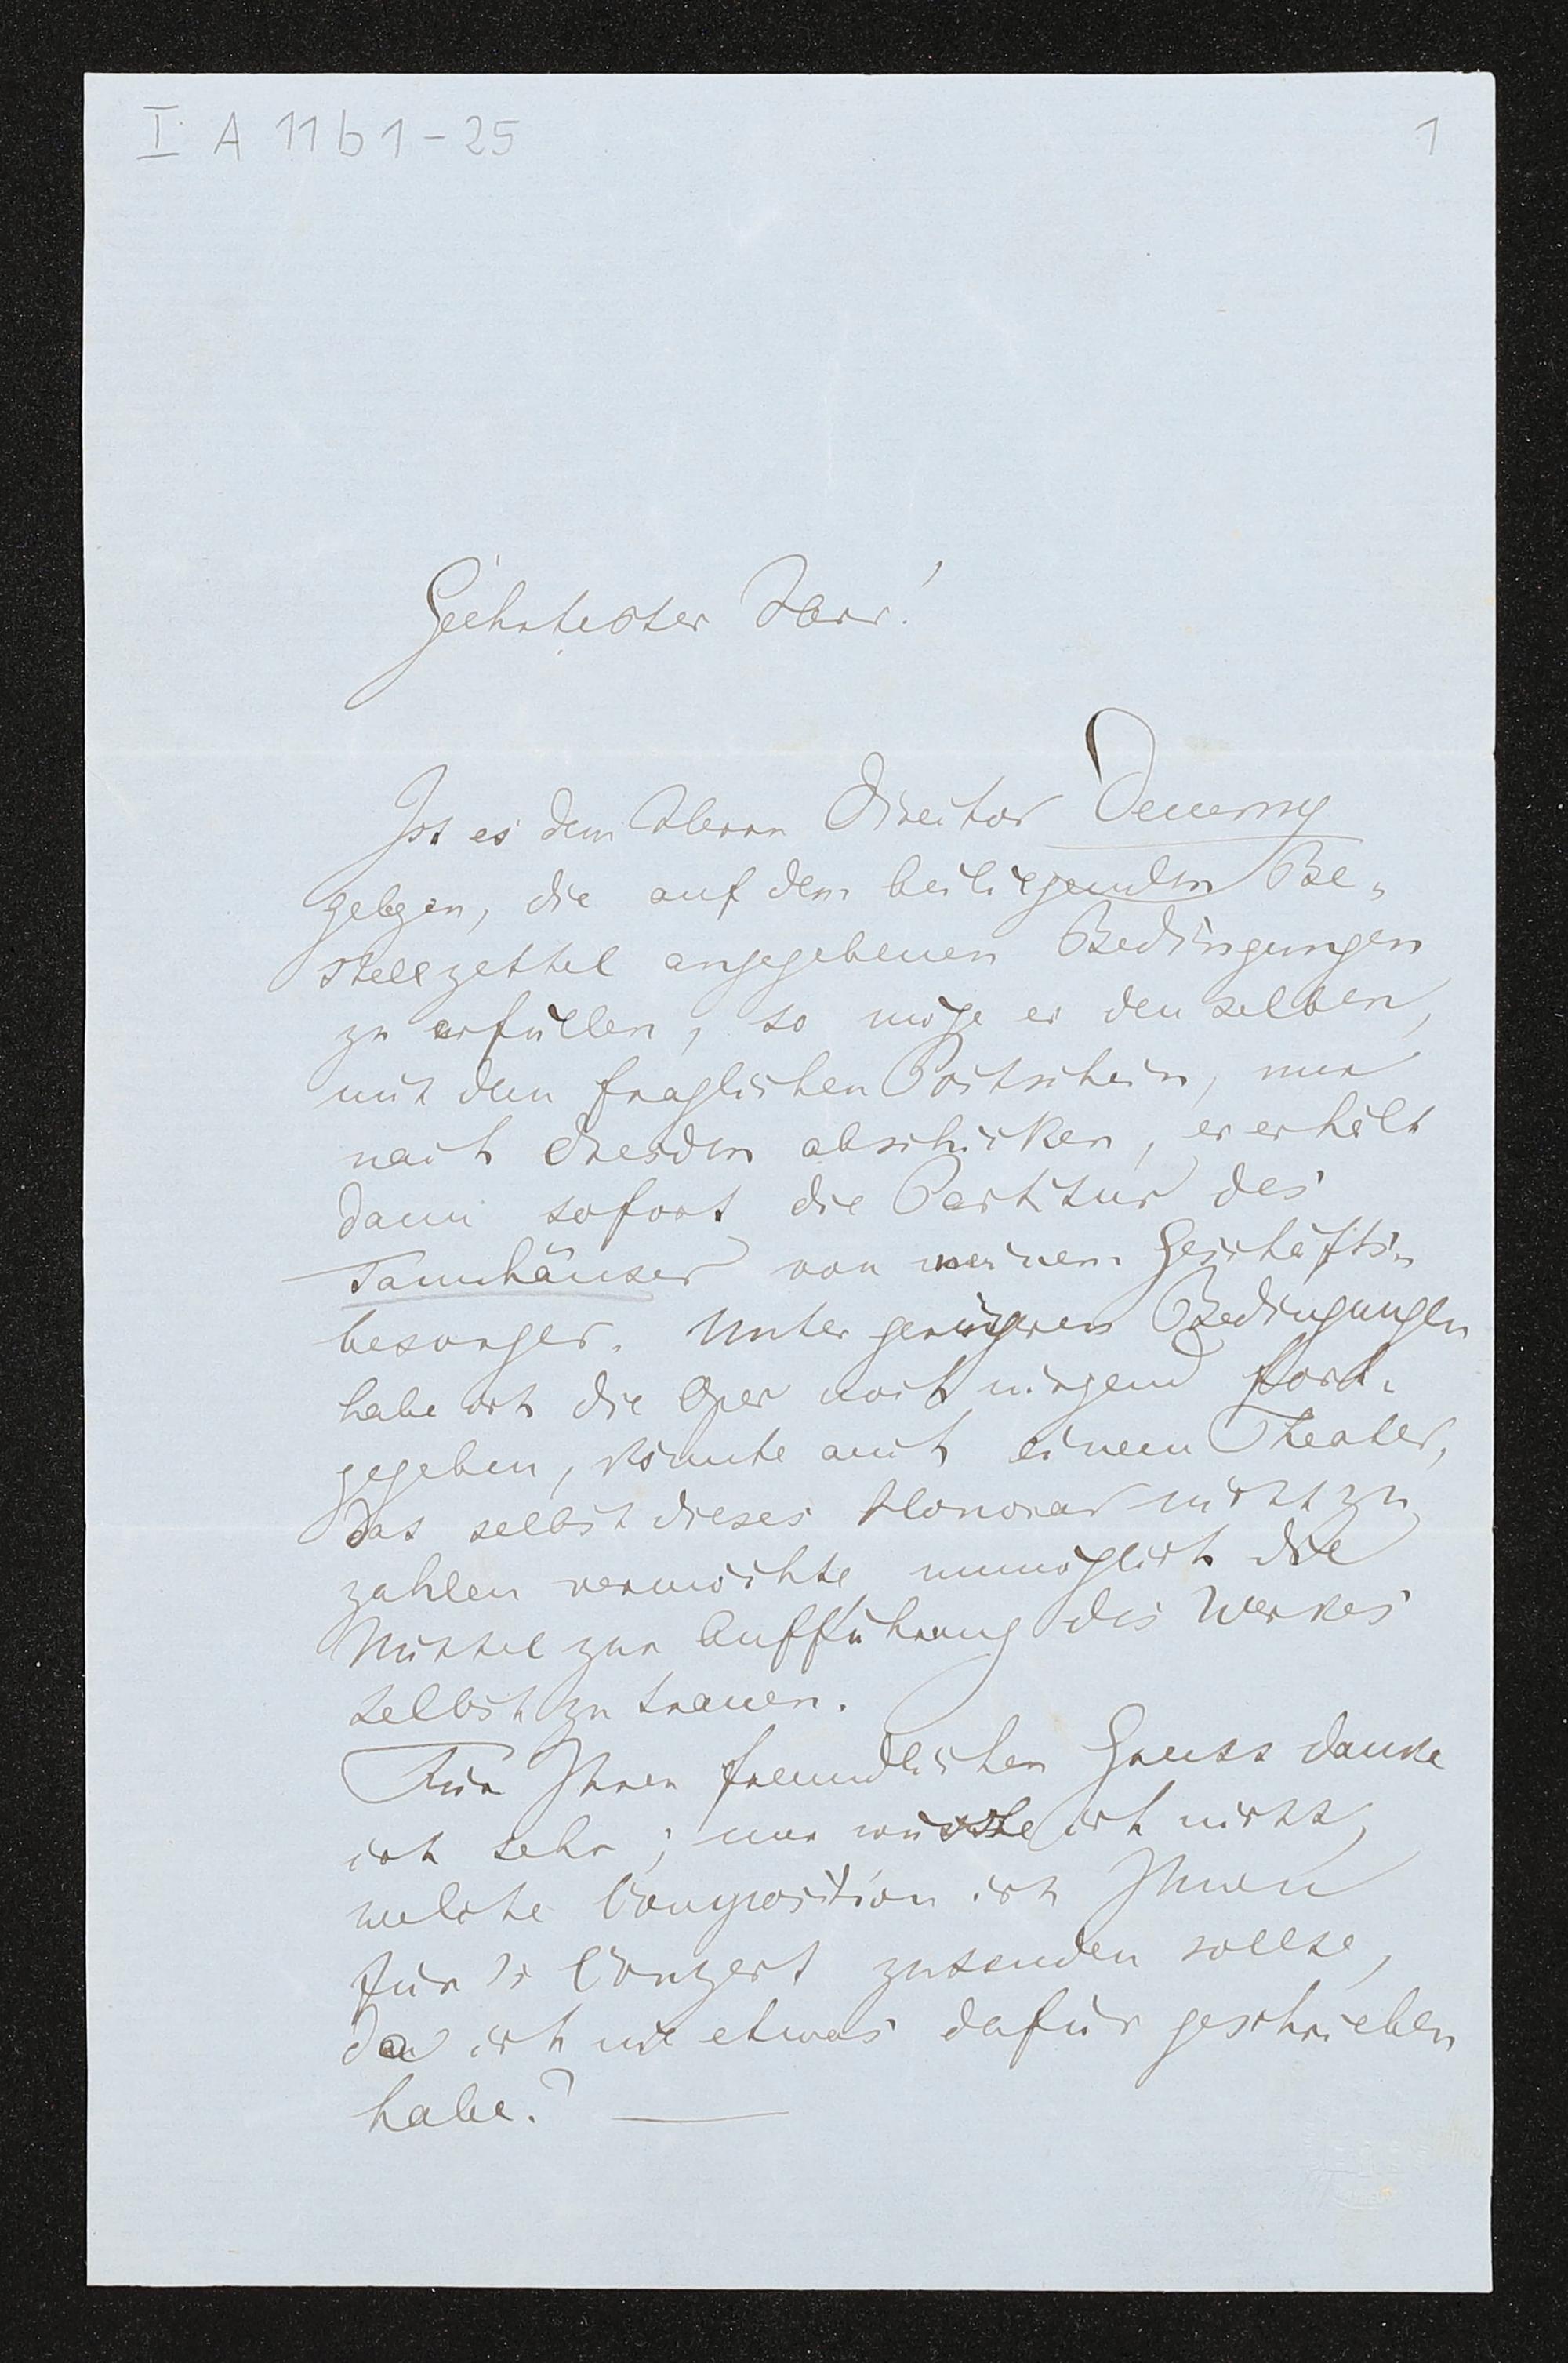 I A 11 b 1-25
1
Geehrtester Herr!
Ist es dem Herrn Director
gelegen, die auf dem beiliegenden Be-
stellzettel angegebenen Bedingungen
zu erfüllen, so möge er denselben,
mit dem fraglichen Postschein, nur
nach Dresden abschicken, er erhält
dann sofort die Partitur des
Tannhäuser von meinem Geschäfts-
besorger. Unter geringeren Bedingungen
habe ich die Oper noch nirgend fort-
gegeben, könnte auch einem Theater,
das selbst dieses Honorar nicht zu
zahlen vermöchte unmöglich die
Mittel zur Aufführung des Werkes
selbst zu trauen.
Für Ihren freundlichen Gruss danke
ich sehr; nur wüsste ich nicht,
welche Composition ich Ihnen
für's Conzert zusenden sollte,
da ich nie etwas dafür geschrieben
habe? —